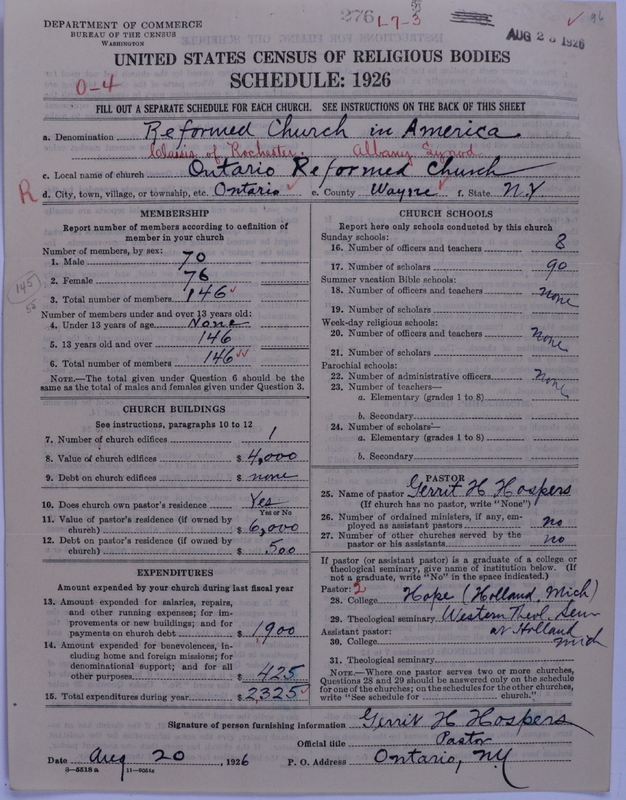 DEPARTMENT OF COMMERCE
BUREAU OF THE CENSUS
WASHINGTON
276
L-7-3
AUG 23 1926
96
UNITED STATES CENSUS OF RELIGIOUS BODIES
SCHEDULE: 1926
O-4
FILL OUT A SEPARATE SCHEDULE FOR EACH CHURCH. SEE INSTRUCTIONS ON THE BACK OF THIS SHEET
a. Denomination Reformed Church in America
Classis of Rochester. Albany Synod
c. Local name of church Ontario Reformed Church
R
d. City, town, village, or township, etc. Ontario e. County Wayne f. State N.Y
MEMBERSHIP
Report number of members according to definition of member in your church
Number of members, by sex:
1. Male 70
2. Female 76
3. Total number of members 146
145
Number of members under and over 13 years old:
4. Under 13 years of age None
5. 13 years old and over 146
6. Total number of members 146
NOTE.—The total given under Question 6 should be the same as the total of males and females given under Question 3.
CHURCH BUILDINGS
See instructions, paragraphs 10 to 12
7. Number of church edifices 1
8. Value of church edifices $ 4,000
9. Debt on church edifices $ none
10. Does church own pastor's residence Yes
Yes or No
11. Value of pastor's residence (if owned by church) $ 6,000
12. Debt on pastor's residence (if owned by church) $ 500
EXPENDITURES
Amount expended by your church during last fiscal year
13. Amount expended for salaries, repairs, and other running expenses; for improvements or new buildings; and for payments on church debt $ 1900
14. Amount expended for benevolences, including home and foreign missions; for denominational support; and for all other purposes $ 425
15. Total expenditures during year $ 2325
CHURCH SCHOOLS
Report here only schools conducted by this church
Sunday schools:
16. Number of officers and teachers 8
17. Number of scholars 90
Summer vacation Bible schools:
18. Number of officers and teachers None
19. Number of scholars
Week-day religious schools:
20. Number of officers and teachers None
21. Number of scholars
Parochial schools:
22. Number of administrative officers None
23. Number of teachers—
a. Elementary (grades 1 to 8)
b. Secondary
24. Number of scholars—
a. Elementary (grades 1 to 8)
b. Secondary
PASTOR
25. Name of pastor Gerrit H. Hospers
(If church has no pastor, write "None")
26. Number of ordained ministers, if any, employed as assistant pastors no
27. Number of other churches served by the pastor or his assistants no
If pastor (or assistant pastor) is a graduate of a college or theological seminary, give name of institution below. (If not a graduate, write "No" in the space indicated.)
Pastor: 2
28. College Hope (Holland, Mich)
29. Theological seminary Western Theol. Sem
at Holland
Mich
Assistant pastor:
30. College
31. Theological seminary
NOTE.—Where one pastor serves two or more churches, Questions 28 and 29 should be answered only on the schedule for one of the churches; on the schedules for the other churches, write "See schedule for church."
Signature of person furnishing information Gerrit H Hospers
Official title Pastor
Date Aug 20, 1926 P. O. Address Ontario, NY